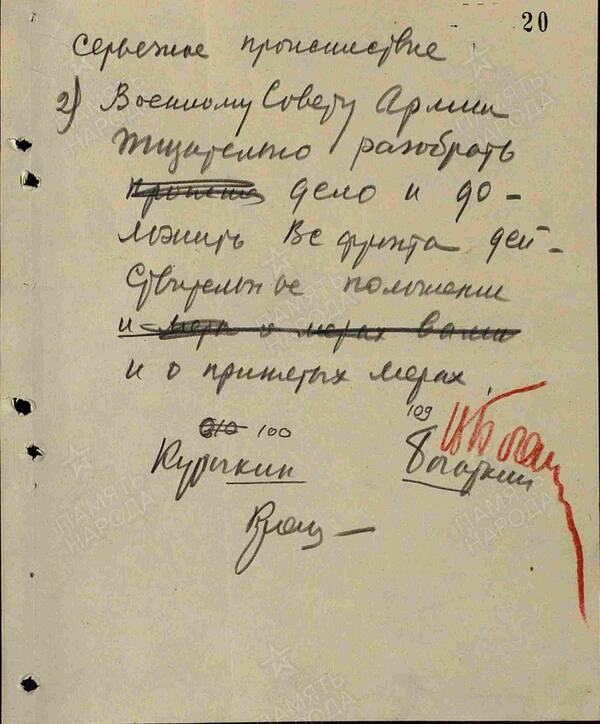 20
серьезное происшествие
2) Военному Совету Армии
тщательно разобрать
дело и до-
ложить ВС фронта дей-
ствительное положении
и мера о мерах вами
и о принятых мерах
100 109
Курыкин Богаткин